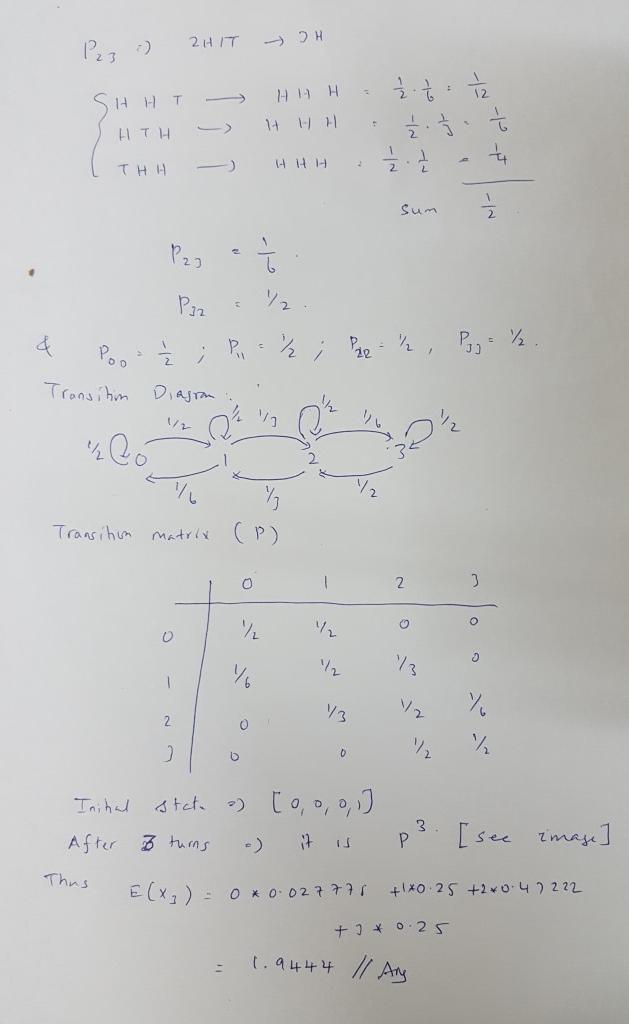 P23 => 2H1T → 3H
H H T → H H H = 1/2 · 1/6 = 1/12
H T H → H H H = 1/2 · 1/3 = 1/6
T H H → H H H = 1/2 · 1/2 = 1/4
Sum 1/2
P23 = 1/6 .
P32 = 1/2 .
& P00 = 1/2 ; P11 = 1/2 ; P22 = 1/2 , P33 = 1/2 .
Transition Diagram :
1/2 1/2 1/3 1/2 1/6 1/2
1/2 0 1 2 3
1/6 1/3 1/2
Transition matrix (P)
0 1 2 3
0 1/2 1/2 0 0
1 1/6 1/2 1/3 0
2 0 1/3 1/2 1/6
3 0 0 1/2 1/2
Initial state => [0, 0, 0, 1]
After 3 turns => it is P^3. [see image]
Thus E(X3) = 0 * 0.027775 + 1*0.25 + 2*0.47222
+ 3 * 0.25
= 1.9444 // Ans